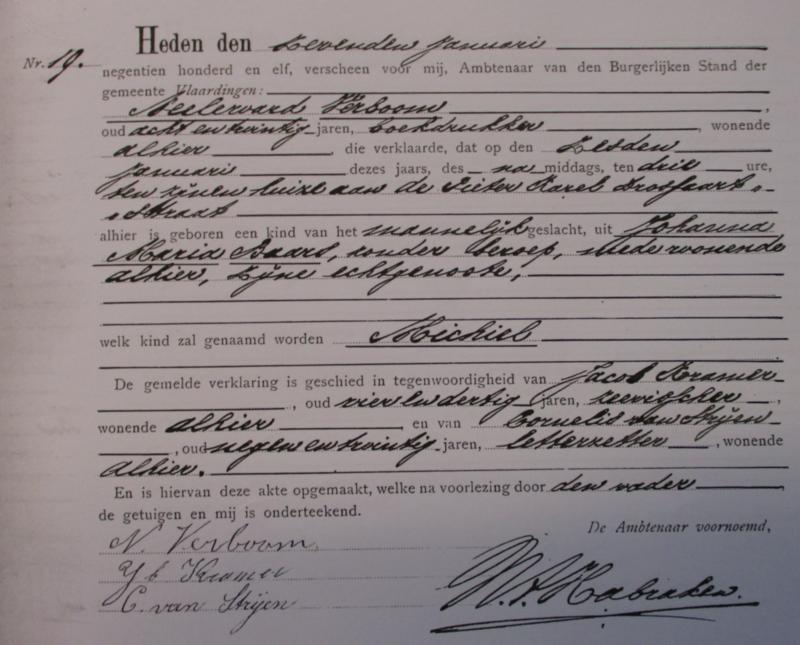 Heden den zevenden Januari
Nr. 19.
negentien honderd en elf, verscheen voor mij, Ambtenaar van den Burgerlijken Stand der
gemeente Vlaardingen:
Neelervard Verboom,
oud acht en twintig jaren, boekdrukker, wonende
alhier, die verklaarde, dat op den zesden
Januari dezes jaars, des na middags, ten drie ure,
ten zijnen huize aan de Pieter Karel Drossaart-
straat
alhier is geboren een kind van het mannelijk geslacht, uit Johanna
Maria Baard, zonder beroep, mede wonende
alhier, zijne echtgenoote,
welk kind zal genaamd worden Michiel
De gemelde verklaring is geschied in tegenwoordigheid van Jacob Kramer
, oud vier en dertig jaren, zeevisscher,
wonende alhier, en van Cornelis van Strijen
, oud negen en twintig jaren, letterzetter, wonende
alhier.
En is hiervan deze akte opgemaakt, welke na voorlezing door den vader,
de getuigen en mij is onderteekend.
De Ambtenaar voornoemd,
N. Verboom
Kramer
C. van Strijen
Habraken.